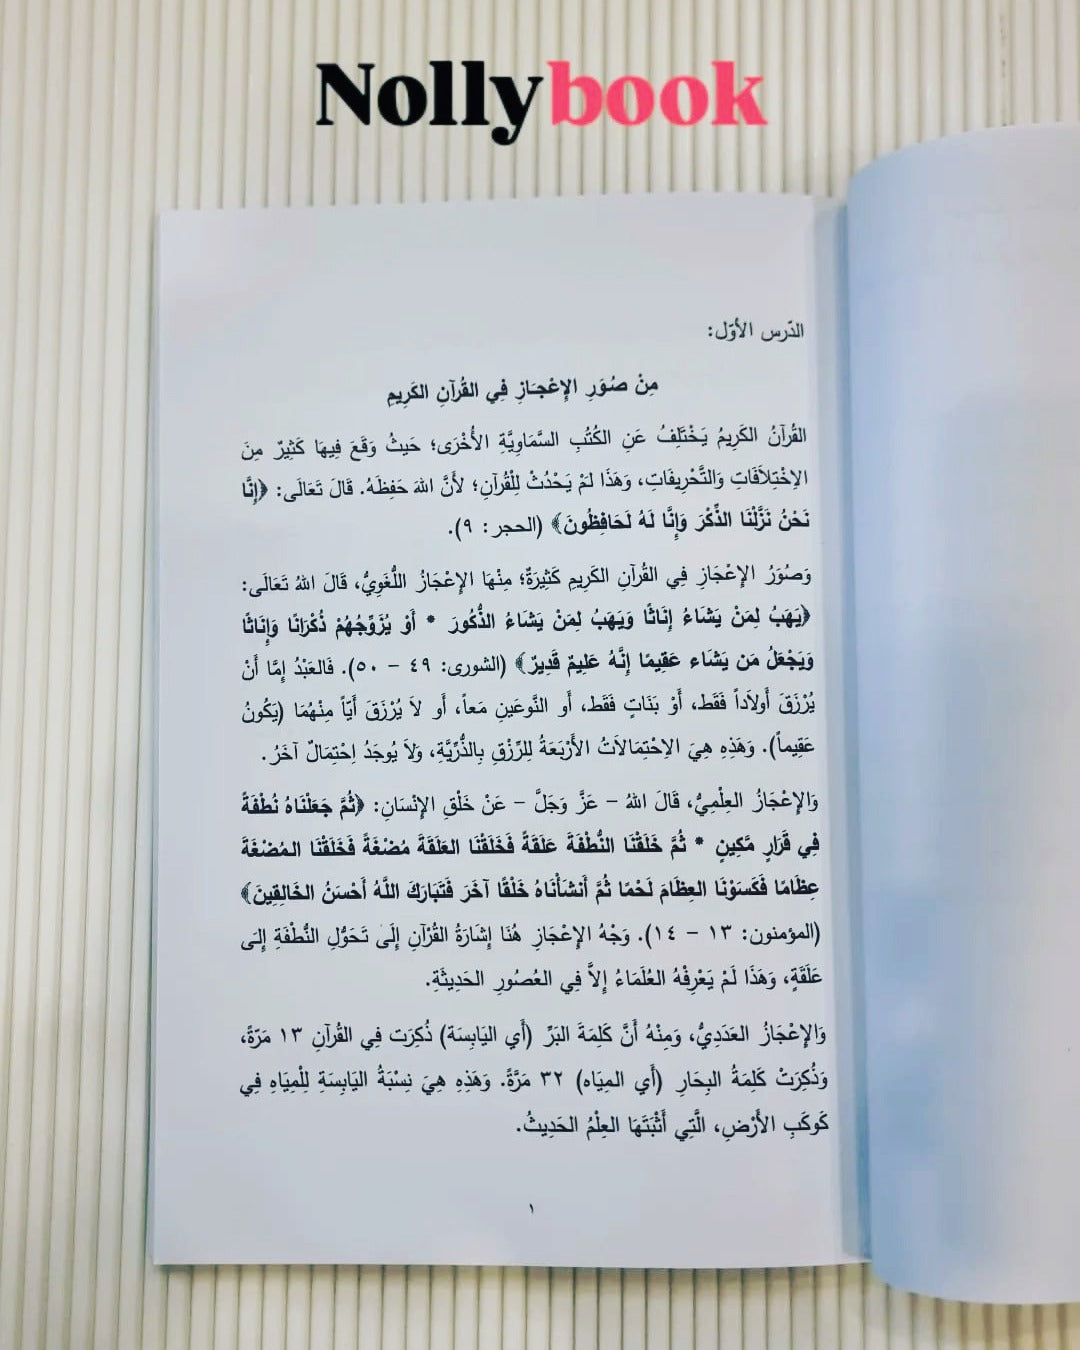 Nollybook
الدّرس الأوّل:
مِنْ صُوَرِ الإِعْجَازِ فِي القُرآنِ الكَرِيمِ
القُرآنُ الكَرِيمُ يَخْتَلِفُ عَنِ الكُتُبِ السَّمَاوِيَّةِ الأُخْرَى؛ حَيثُ وَقَعَ فِيهَا كَثِيرٌ مِنَ
الاِخْتِلاَفَاتِ وَالتَّحْرِيفَاتِ، وَهَذَا لَمْ يَحْدُثْ لِلْقُرآنِ؛ لأَنَّ اللهَ حَفِظَهُ. قَالَ تَعَالَى: ﴿إِنَّا
نَحْنُ نَزَّلْنَا الذِّكْرَ وَإِنَّا لَهُ لَحَافِظُونَ﴾ (الحجر: ٩).
وَصُوَرُ الإِعْجَازِ فِي القُرآنِ الكَرِيمِ كَثِيرَةٌ؛ مِنْهَا الإِعْجَازُ اللُّغَوِيُّ، قَالَ اللهُ تَعَالَى:
﴿يَهَبُ لِمَنْ يَشَاءُ إِنَاثًا وَيَهَبُ لِمَنْ يَشَاءُ الذُّكُورَ * أَوْ يُزَوِّجُهُمْ ذُكْرَانًا وَإِنَاثًا
وَيَجْعَلُ مَن يَشَاء عَقِيمًا إِنَّهُ عَلِيمٌ قَدِيرٌ﴾ (الشورى: ٤٩ – ٥٠). فَالعَبْدُ إِمَّا أَنْ
يُرْزَقَ أَولاَداً فَقَط، أَوْ بَنَاتٍ فَقَط، أَو النَّوعَينِ مَعاً، أَو لاَ يُرْزَقَ أَيّاً مِنْهُمَا (يَكُونُ
عَقِيماً). وَهَذِهِ هِيَ الاِحْتِمَالاَتُ الأَرْبَعَةُ لِلرِّزْقِ بِالذُّرِّيَّةِ، وَلاَ يُوجَدُ اِحْتِمَالٌ آخَرُ.
وَالإِعْجَازُ العِلْمِيُّ، قَالَ اللهُ – عَزَّ وَجَلَّ – عَنْ خَلْقِ الإِنْسَانِ: ﴿ثُمَّ جَعَلْنَاهُ نُطْفَةً
فِي قَرَارٍ مَّكِينٍ * ثُمَّ خَلَقْنَا النُّطْفَةَ عَلَقَةً فَخَلَقْنَا العَلَقَةَ مُضْغَةً فَخَلَقْنَا المُضْغَةَ
عِظَامًا فَكَسَوْنَا العِظَامَ لَحْمًا ثُمَّ أَنشَأْنَاهُ خَلْقًا آخَرَ فَتَبَارَكَ اللَّهُ أَحْسَنُ الخَالِقِينَ﴾
(المؤمنون: ١٣ – ١٤). وَجْهُ الإِعْجَازِ هُنَا إِشَارَةُ القُرْآنِ إِلَى تَحَوُّلِ النُّطْفَةِ إِلَى
عَلَقَةٍ، وَهَذَا لَمْ يَعْرِفْهُ العُلَمَاءُ إِلاَّ فِي العُصُورِ الحَدِيثَةِ.
وَالإِعْجَازُ العَدَدِيُّ، وَمِنْهُ أَنَّ كَلِمَةَ البَرِّ (أَي اليَابِسَة) ذُكِرَت فِي القُرآنِ ١٣ مَرّةً،
وَذُكِرَتْ كَلِمَةُ البِحَارِ (أَي المِيَاه) ٣٢ مَرَّةً. وَهَذِهِ هِيَ نِسْبَةُ اليَابِسَةِ لِلْمِيَاهِ فِي
كَوكَبِ الأَرْضِ، الَّتِي أَثْبَتَهَا العِلْمُ الحَدِيثُ.
١